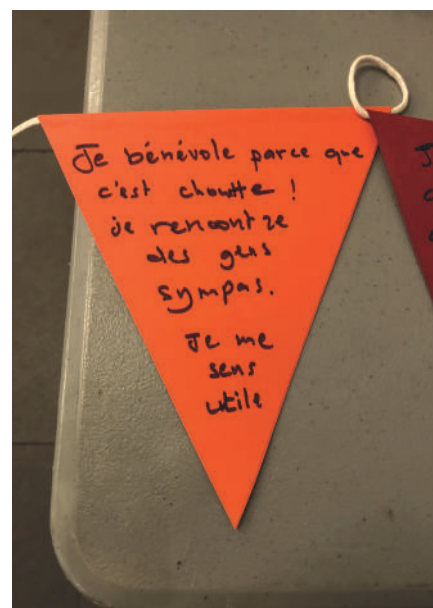 Je bénévole parce que
c'est chouette !
je rencontre
des gens
sympas.
Je me
sens
utile